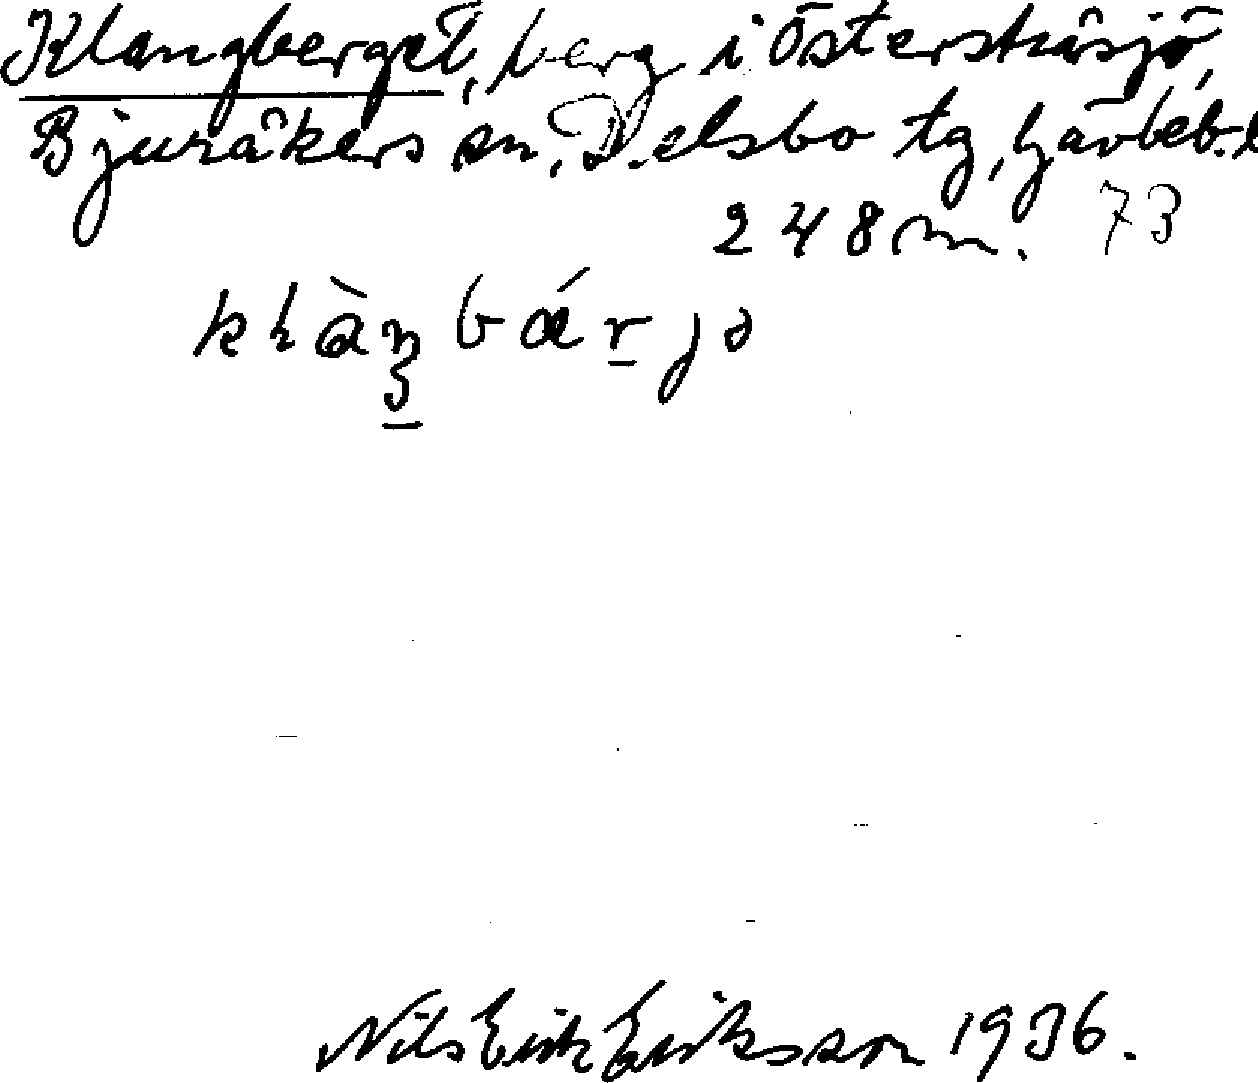 Klangberget, berg i Österskåsjö,
Bjuråkers sn, Delsbo tg, Gävleb. l
248 m. 73
Nils Erik Eriksson 1936.